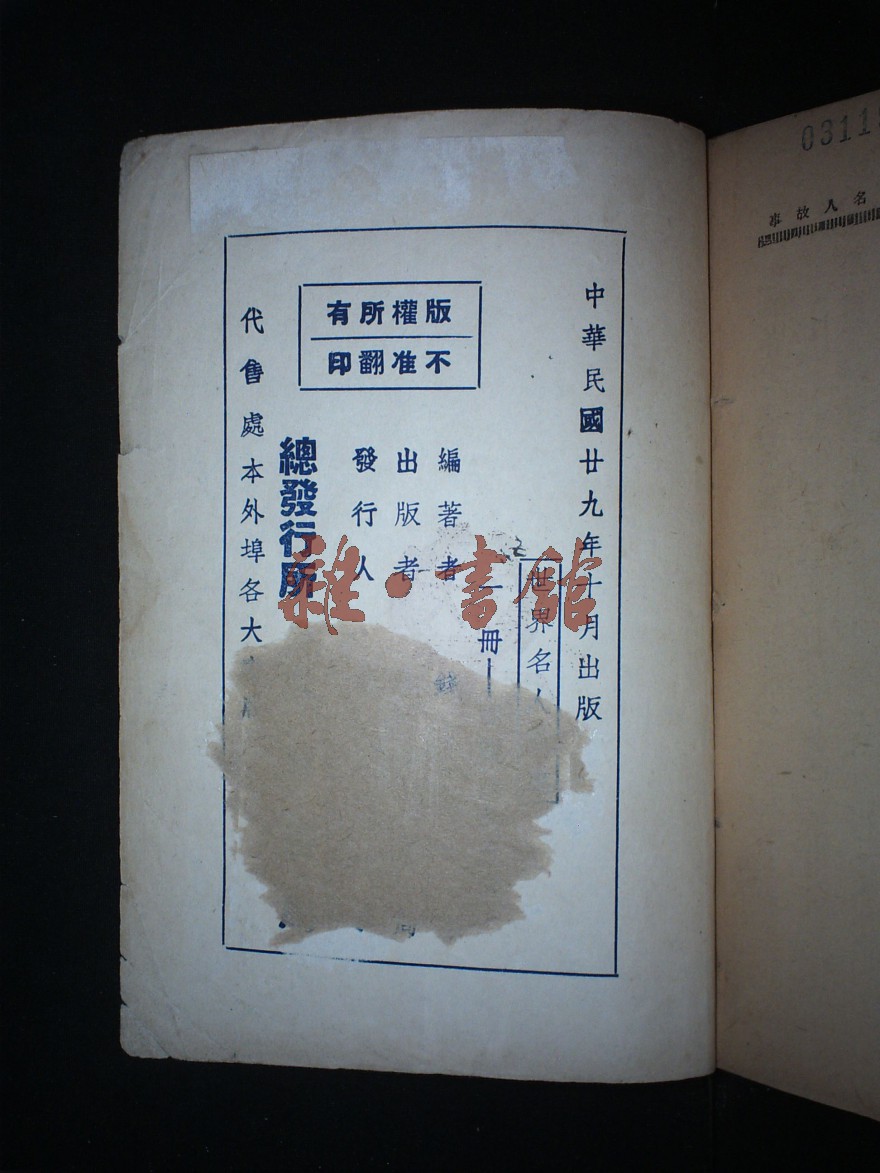 中華民國廿九年十月出版
世界名人
一冊
版權所有
不准翻印
編著者
出版者
發行人
總發行所
代售處本外埠各大
雜·書館
0311
名人故事